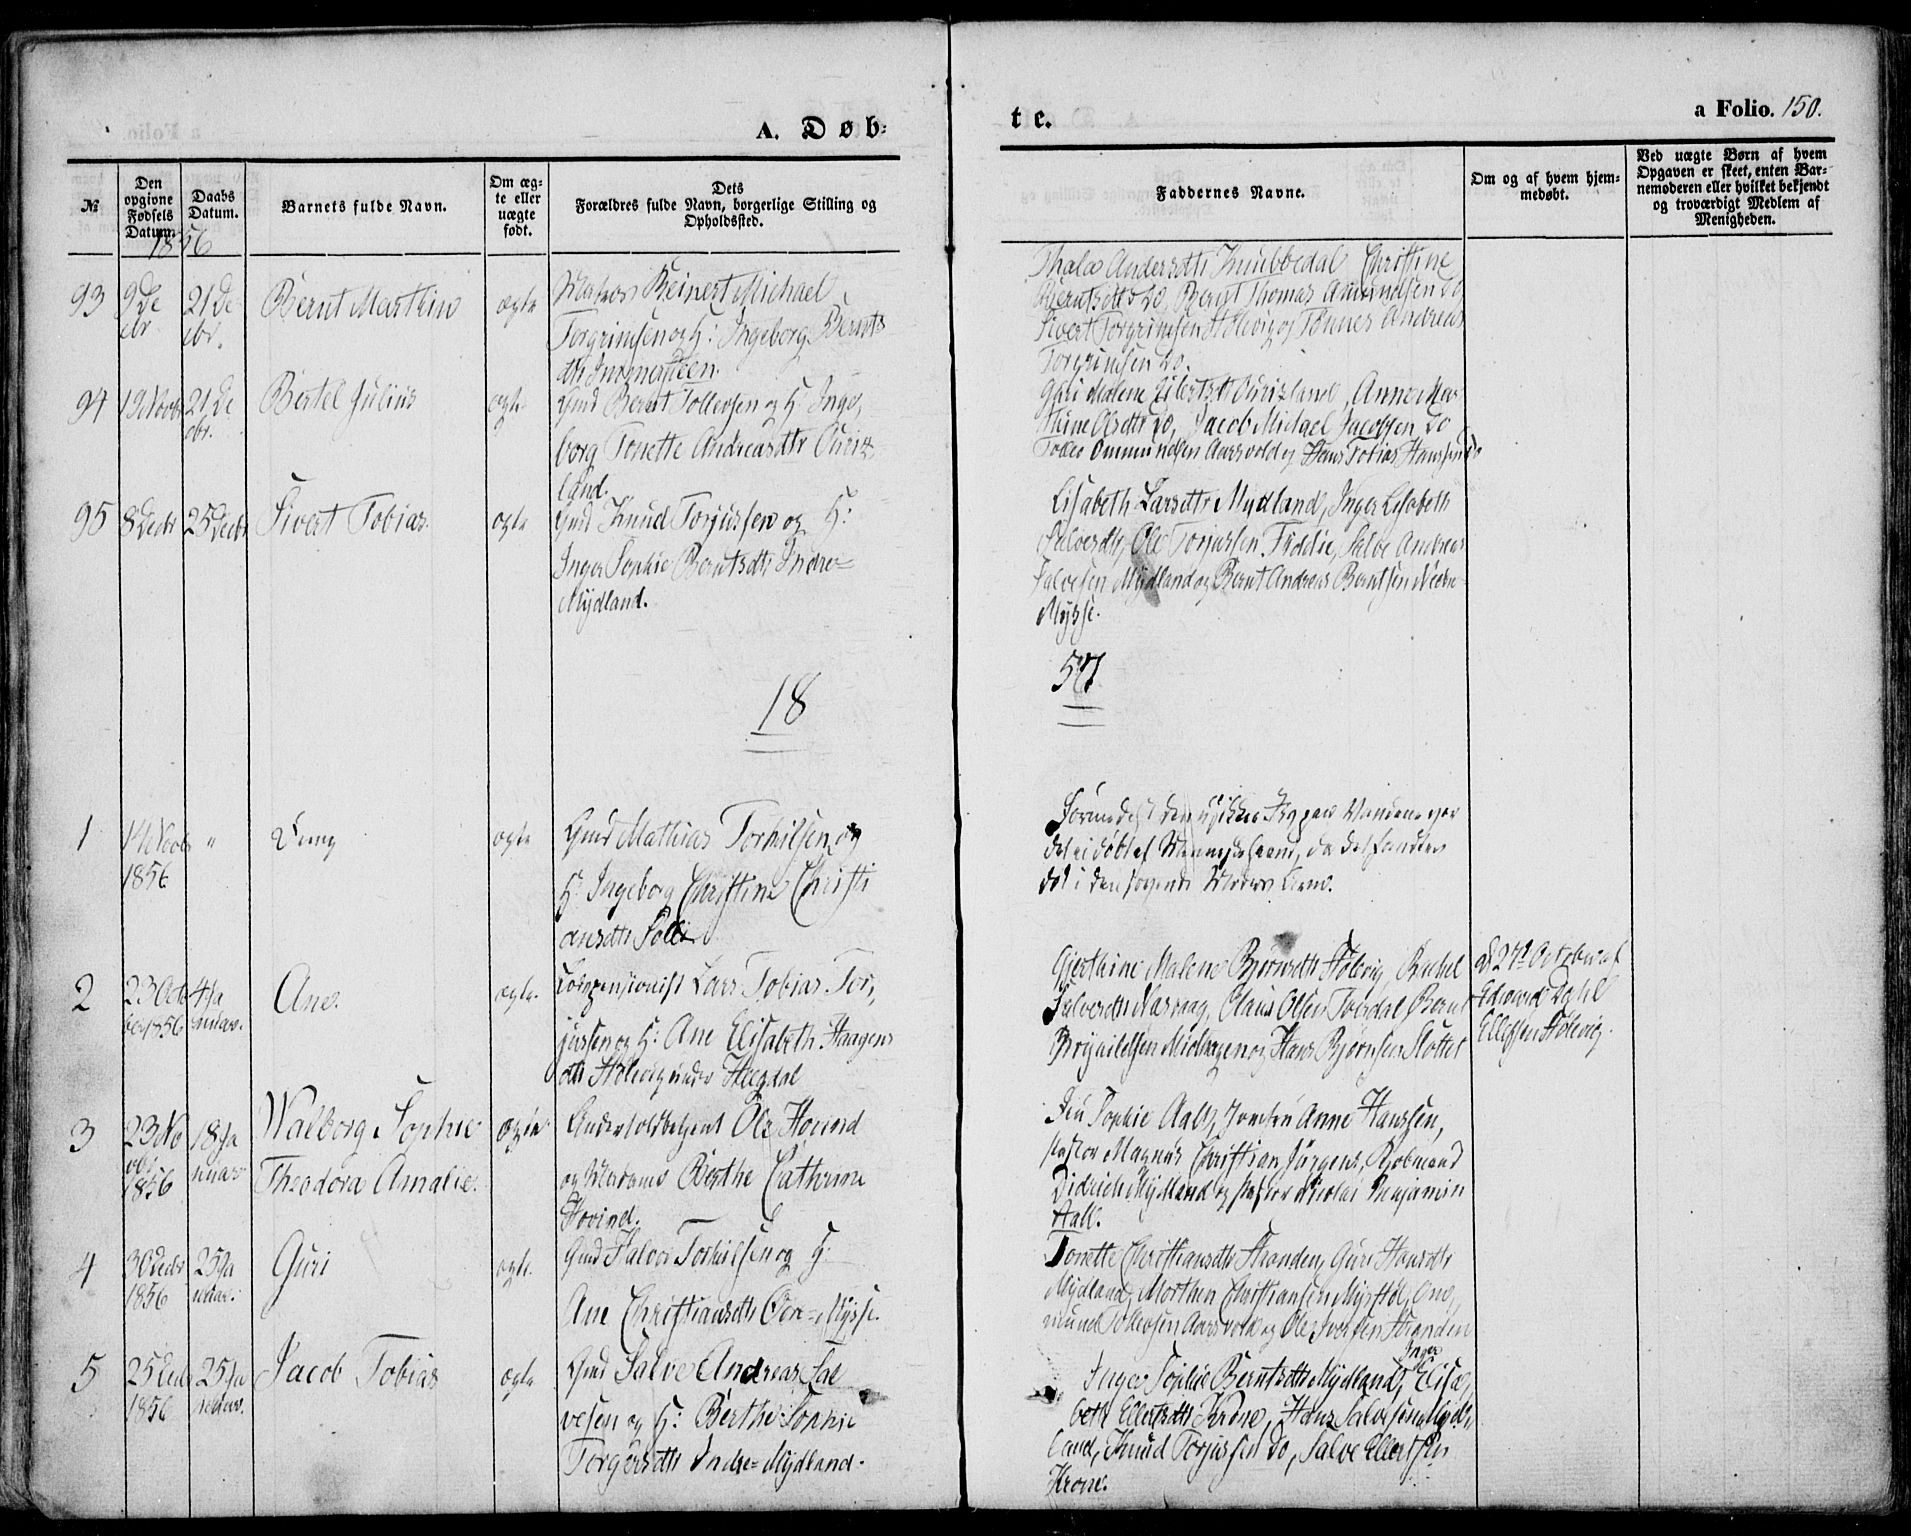 A. Døb=
te.
a Folio. 150.
№
Den opgivne Fødsels Datum.
Daabs Datum.
Barnets fulde Navn.
Om ægte eller uægte født.
Dets Forældres fulde Navn, borgerlige Stilling og Opholdssted.
Faddernes Navne.
Om og af hvem hjemmedøbt.
Ved uægte Børn af hvem Opgaven er skeet, enten Barnemoderen eller hvilket bekjendt og troværdigt Medlem af Menigheden.
1856
93
9 De
cbr.
21 De
cbr.
Bernt Marthin
ægte
Matros Reinert Michael
Torgrimsen og H: Ingeborg Bernts
dtr
Thale Andersdtr Knubbedal Christine
Berntsdtr do, Bernt Thomas Amundsen do
Sivert Torgrimsen Hølevig og Tønnes Andreas
Torgrimsen do.
94
19 Novbr
21 De
cbr.
Bertel Julius
ægte
Gmd Bernt Tollevsen og H: Inge
borg Tonette Andreasdtr Ouritz
land.
Guri Malene Eilertsdtr Ouritzland, Anne Mar
thine Olsdtr do, Jacob Michael Jacobsen do
Tollev Ommundsen Aarsvold og Hans Tobias Hanssen do
95
8 Decbr
25 Decbr
Sivert Tobias.
ægte
Gmd Knud Torjussen og H:
Inger Sophie Berntsdtr Indre=
Mydland.
Lisabeth Larsdtr Mydland, Inger Lisabeth
Salvesdtr, Ole Torjussen Fiddie, Salve Andreas
Salvesen Mydland og Bernt Andreas Berntsen Nedre
Mysse.
18
1
14 Novbr
1856
"
Dreng
ægte
Gmd Mathias Torkilsen og
H: Ingeborg Christine Christi
ansdtr
det ei døbt af
død i den
2
23 Octo
ber 1856
4 Ja
nuar.
Ane.
ægte.
Lars Tobias Tor,
jussen og H: Ane Elisabeth Haagens
dtr Hølevig under Heegdal
Gjerthine Malene Bjørnsdtr Hølevig, Rachel
Salvesdtr, Claus Olsen, Bernt
og Hans Bjørnsen Slottet
d 27d October af
Edvard
Ellefsen Hølevig.
3
23 No
vbr
1856
18 Ja
nuar
Walborg Sophie
Theodora Amalie.
ægte
Underfoldbetjent Ole Hovind
og Madame Berthe Cathrine
Hovind.
Fru Sophie Aall, Jomfru Anne Hanssen,
Pastor Magnus Christian Jürgens, Kjøbmand
Didrich Mydland og Pastor Nicolai Benjamin
Aall.
4
30 Decbr
1856
25 Ja
nuar.
Guri
ægte.
Gmd Salve Torkilsen og H:
Ane Christiansdtr Øvre=Mysse.
Tonette Christiansdtr Stranden, Guri Hansdtr
Mydland, Morthen Christiansen, Om,
mund Tollevsen Aarsvold og Ole Iversen Stranden
5
25 Decbr
1856
25 Ja
nuar.
Jacob Tobias
ægte
Gmd Salve Andreas Sal
vesen og H: Berthe Sophie
Torgersdtr Indre=Mydland.
Inger Sophie Berntsdtr Mydland, Inger Elisa,
beth Ellertsdtr Krone, Hans Salvesen Myd,
land, Knud Torjussen do, Salve Ellertsen
Krone.